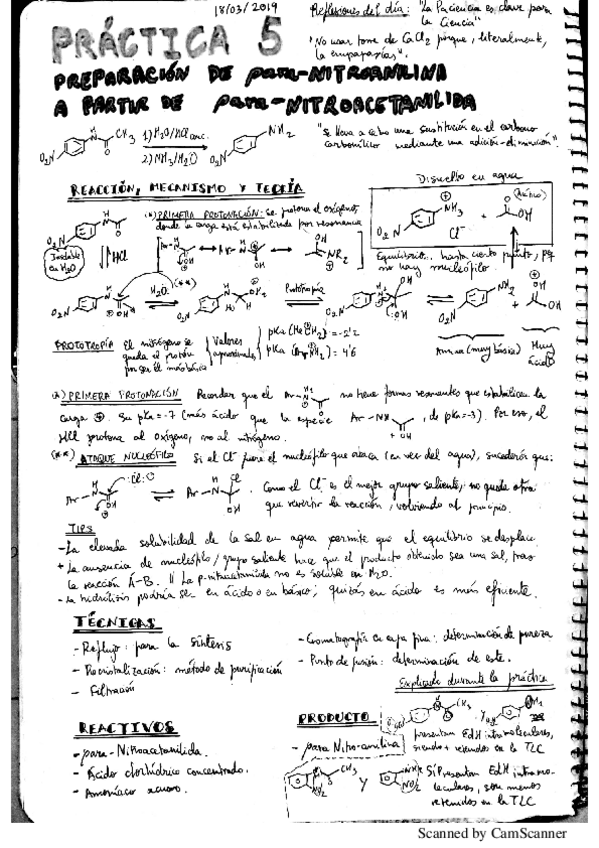 18/03/2019
Reflexiones del día: "La Paciencia es clave para
la Ciencia"
"No usar tome de CaCl2 porque, literalmente,
la empaparías".
PRÁCTICA 5
PREPARACIÓN DE para-NITROANILINA
A PARTIR DE para-NITROACETANILIDA
1) H2O/HCl conc.
2) NH3/H2O
"Se lleva a cabo una sustitución en el carbono
carbonílico mediante una adición-eliminación".
REACCIÓN, MECANISMO Y TEORÍA
Disuelto en agua
(*) PRIMERA PROTONACIÓN: Se protona el oxígeno,
donde la carga está estabilizada por resonancia
Insoluble
en H2O
HCl
Equilibrio hasta cierto punto, pq
no hay nucleófilo.
H2O
(**)
Prototropía
PROTOTROPÍA El nitrógeno se
queda el protón
por ser el más básico
Valores
aproximados
Amina (muy básica)
Muy
ácido
(*) PRIMERA PROTONACIÓN Recordar que el
no tiene formas resonantes que estabilicen la
carga ⊕. Su pKa = -7 (más ácido que la especie
, de pKa=-3). Por eso, el
HCl protona al oxígeno, no al nitrógeno.
(**) ATAQUE NUCLEÓFILO Si el Cl⁻ fuere el nucleófilo que ataca (en vez del agua), sucedería que:
Como el Cl⁻ es el mejor grupo saliente, no queda otra
que revertir la reacción, volviendo al principio.
TIPS
- La elevada solubilidad de la sal en agua permite que el equilibrio se desplace
+ La ausencia de nucleófilo/grupo saliente hace que el producto obtenido sea una sal, tras
la reacción A-B. // La p-nitroacetanilida no es soluble en H2O.
- La hidrólisis podría ser en ácido o en básico; quizás en ácido es más eficiente.
TÉCNICAS
- Reflujo: para la síntesis
- Recristalización: método de purificación
- Filtración
- Cromatografía en capa fina: determinación de pureza
- Punto de fusión: determinación de este.
Explicado durante la práctica
REACTIVOS
- para-Nitroacetanilida.
- Ácido clorhídrico concentrado.
- Amoníaco acuoso.
PRODUCTO
- para Nitro-anilina
presentan EdH intermoleculares,
siendo + retenidos en la TLC
Sí Presentan EdH intramo-
leculares, son menos
retenidos en la TLC
Scanned by CamScanner